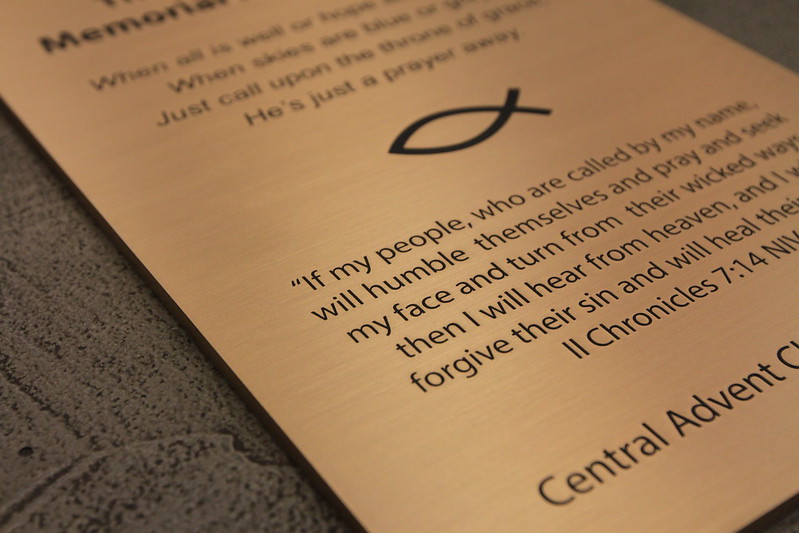 Memorial
When all is well or hope
When skies are blue or
Just call upon the throne of grace
He's just a prayer away
"If my people, who are called by my name,
will humble themselves and pray and seek
my face and turn from their wicked ways
then I will hear from heaven, and I
forgive their sin and will heal their
II Chronicles 7:14 NIV
Central Advent